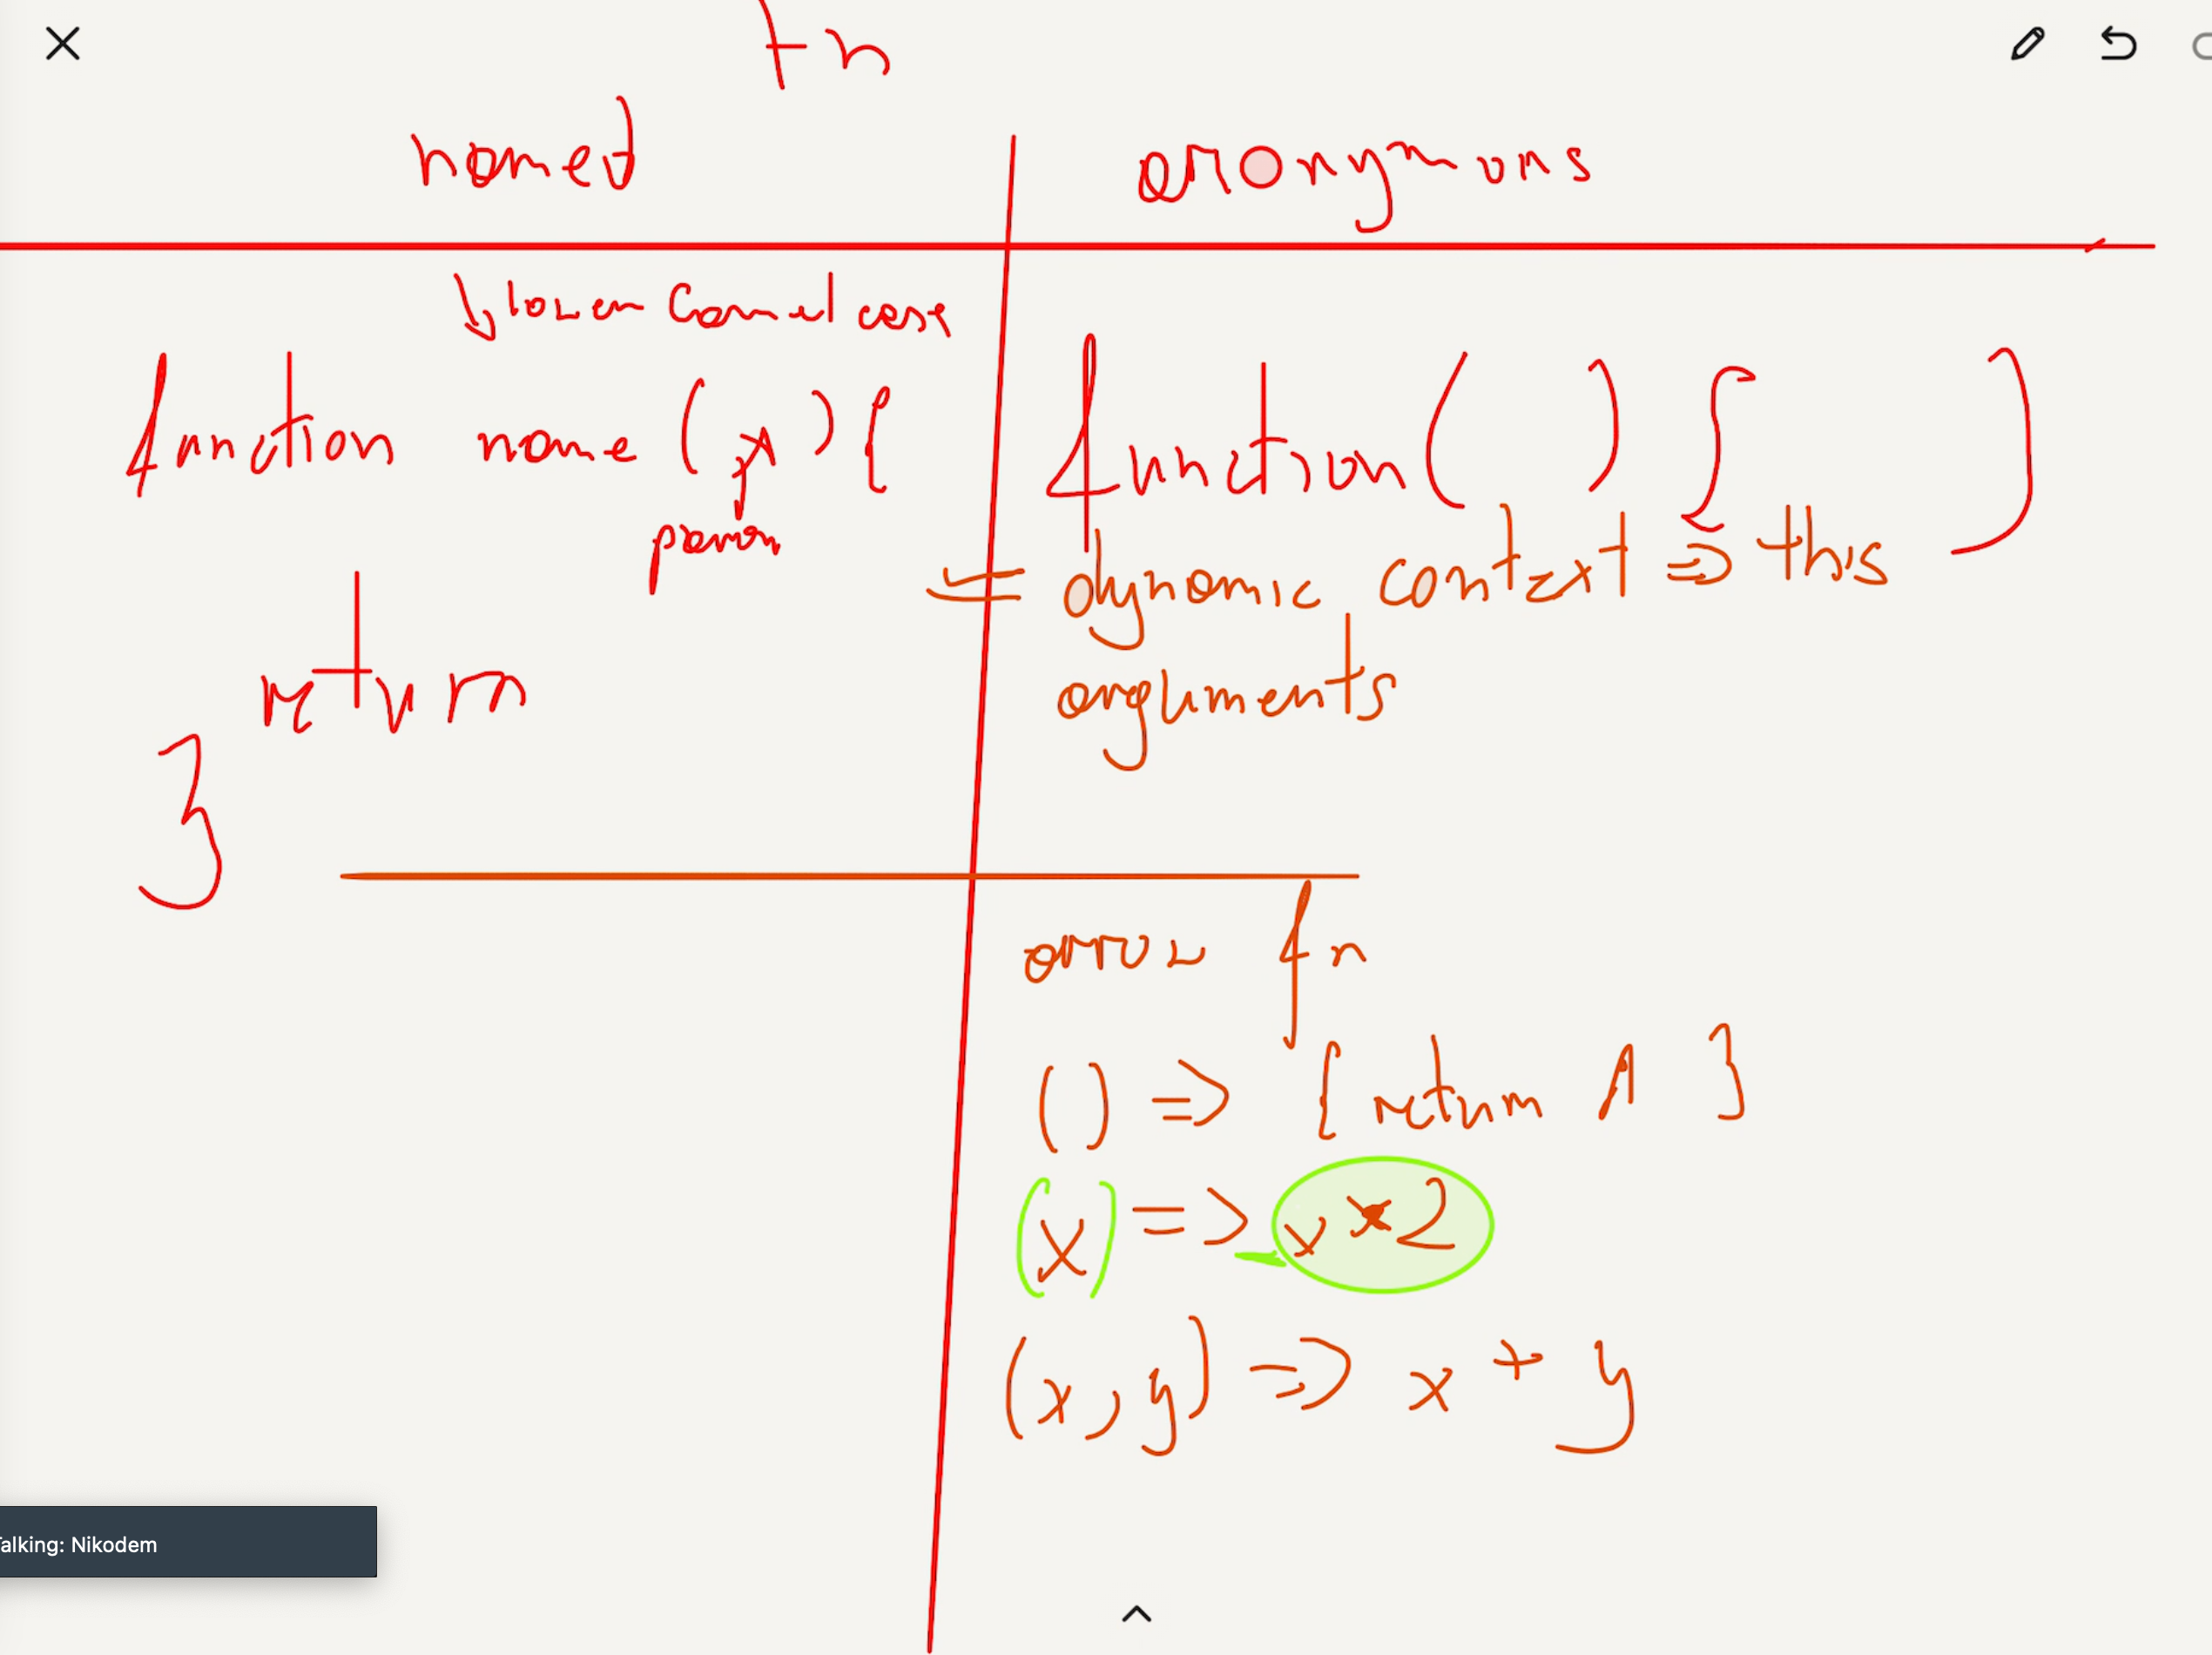 fn
named
anonymous
lower Camel case
function name (x) {
param
return
}
function( ) { }
⇐ dynamic context ⇒ this
arguments
arrow fn
() => { return A }
(x) => x * 2
(x, y) => x + y
alking: Nikodem